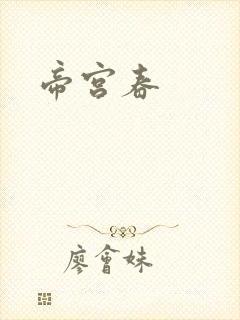 帝宮春
廖會妹